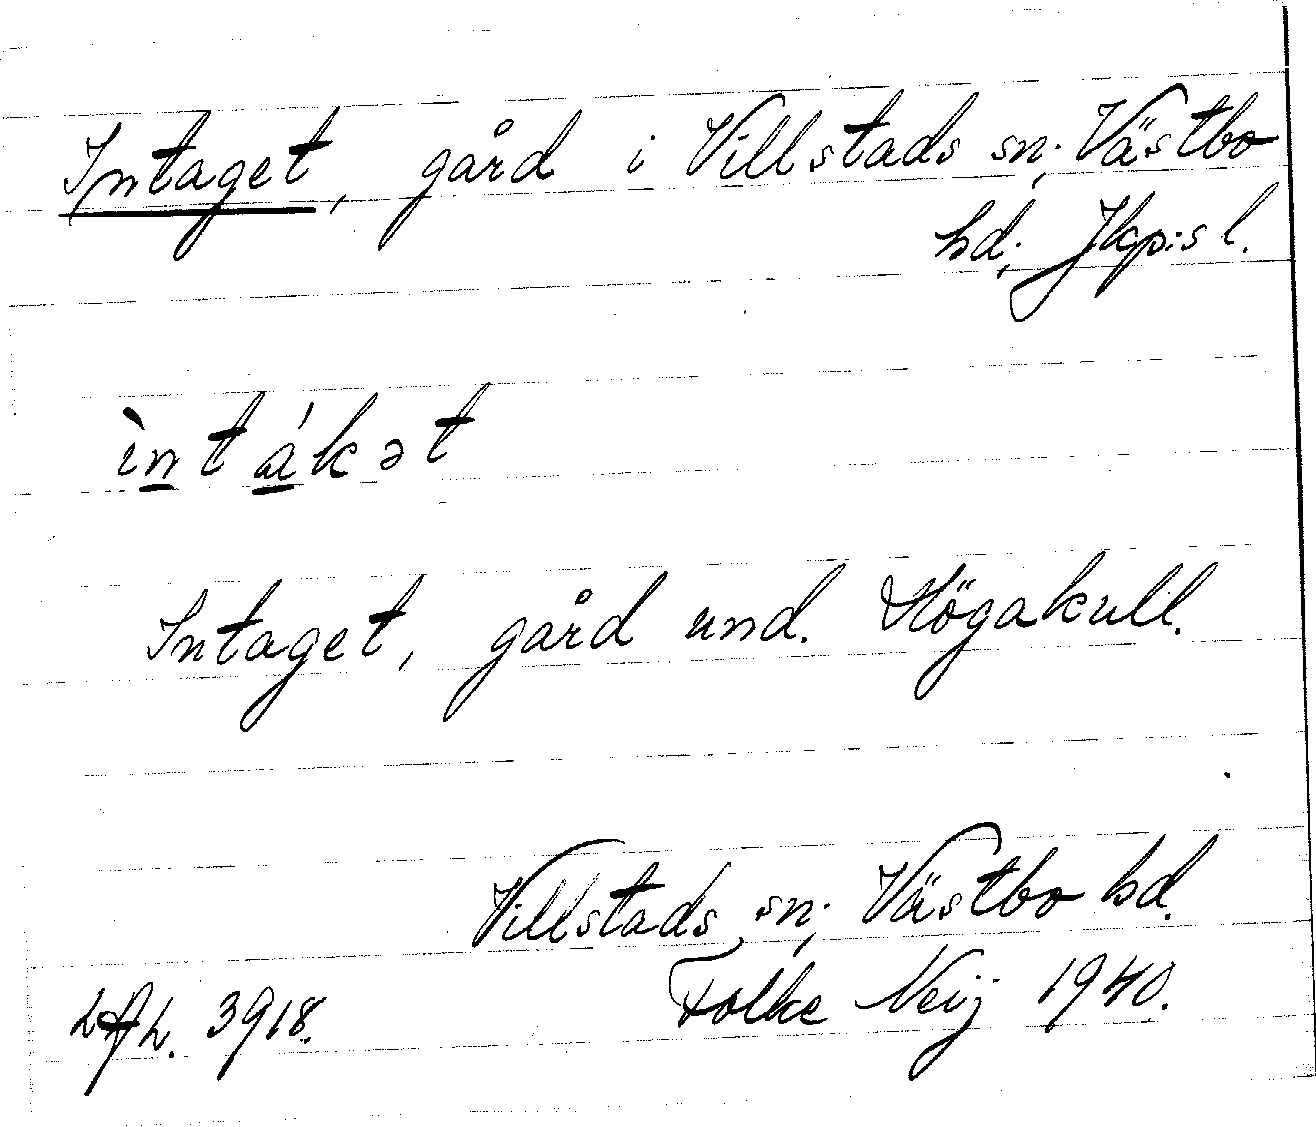 Intaget, gård i Villstads sn; Västbo
hd; Jkp:s l.
ìntákət
Intaget, gård und. Högakull.
Villstads sn; Västbo hd.
Folke Neij 1940.
3918.